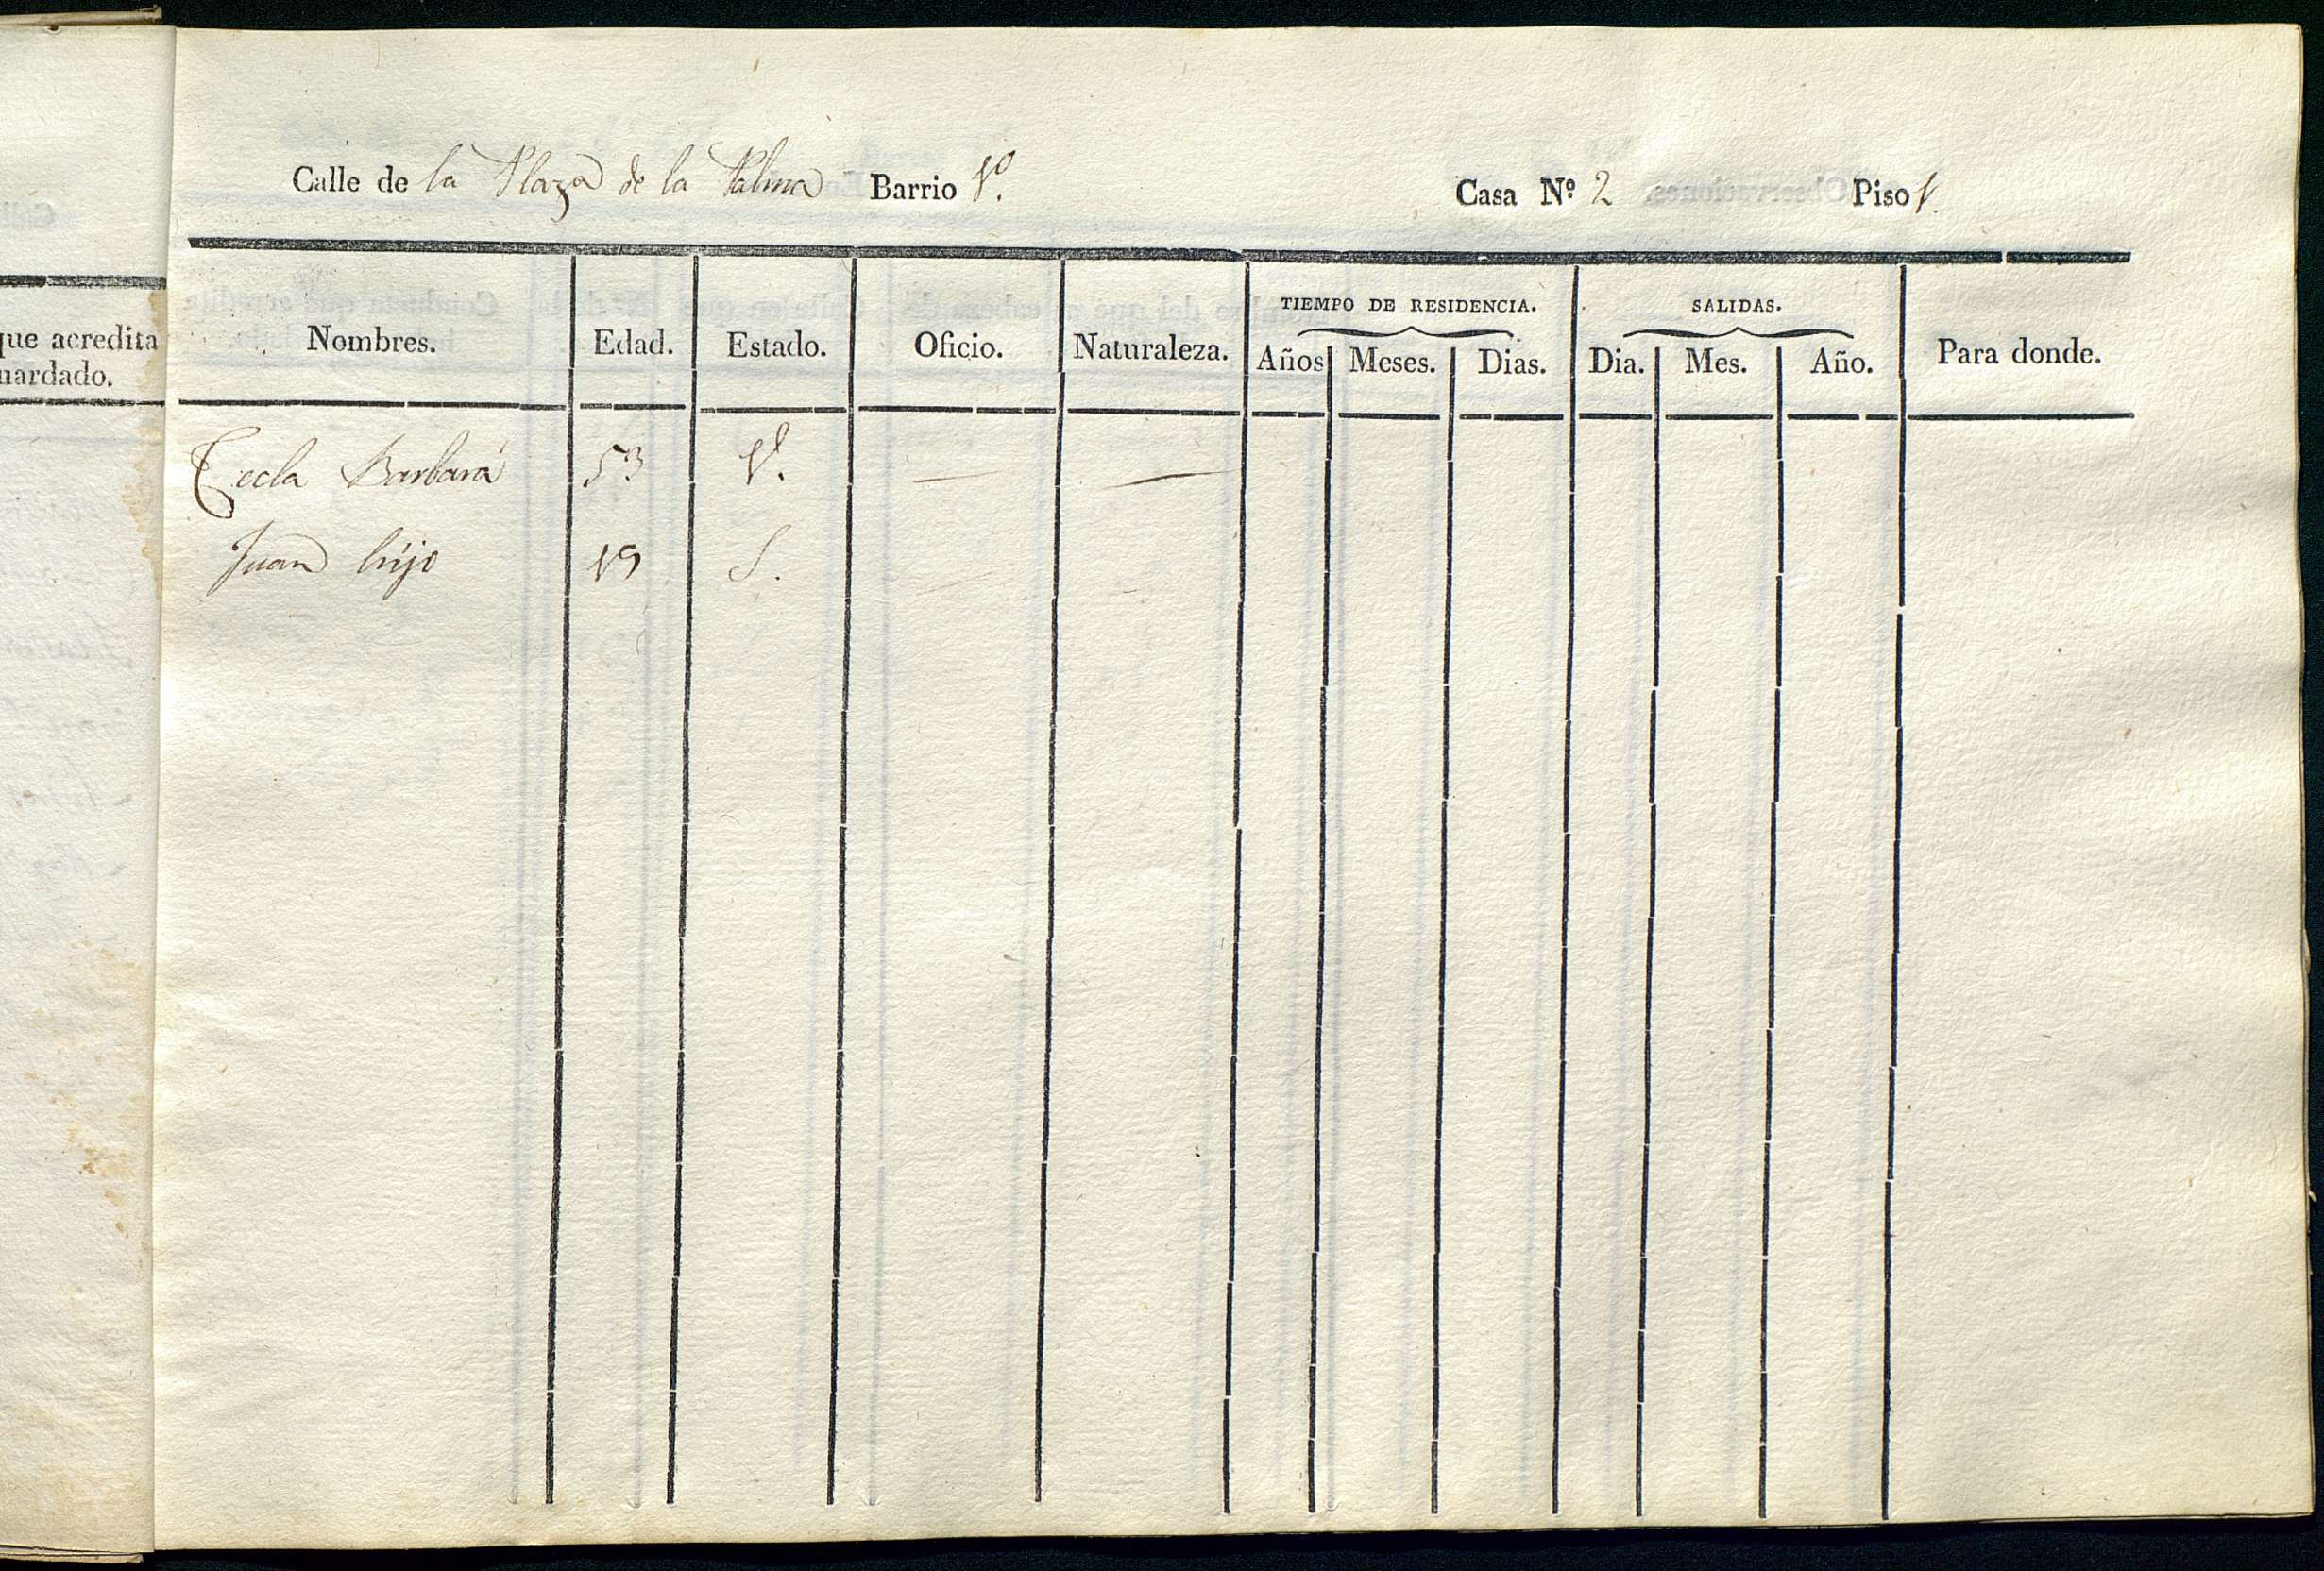 Calle de la Plaza de la Palma Barrio 1º. Casa Nº 2 Piso 1.
que acredita
uardado.
TIEMPO DE RESIDENCIA. SALIDAS.
Nombres. Edad. Estado. Oficio. Naturaleza. Años Meses. Dias. Dia. Mes. Año. Para donde.
Tecla Barbará 53 Vᵃ. — —
Juan hijo 19 S.